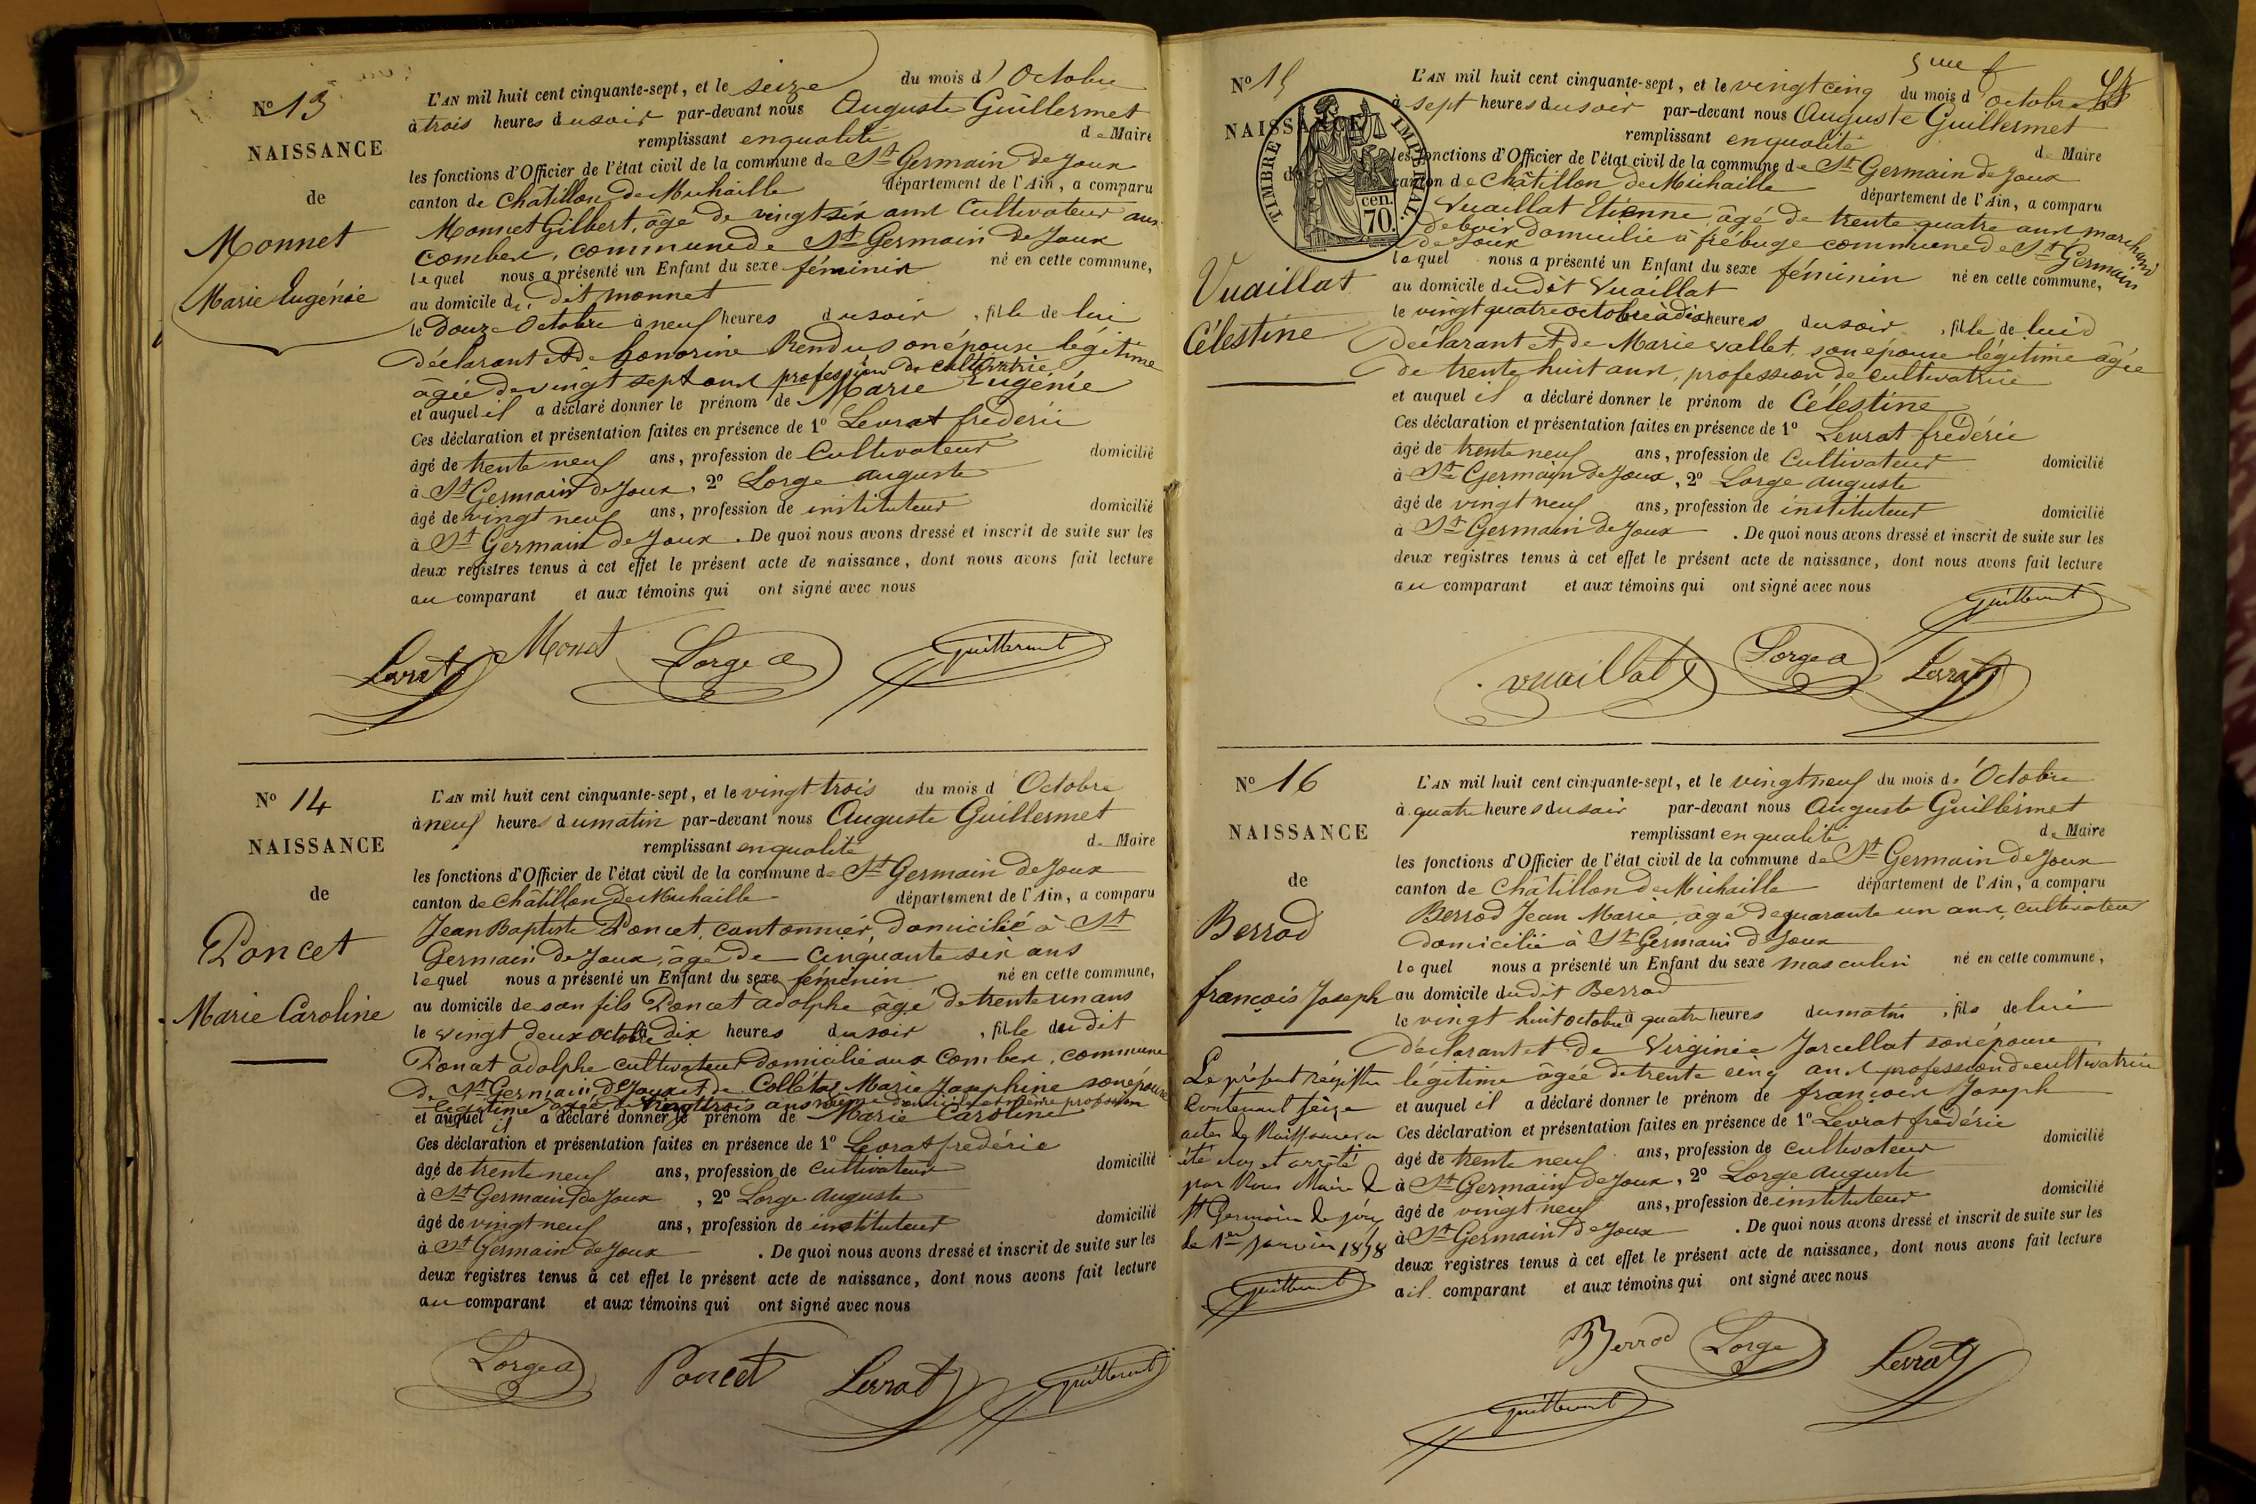 N° 13
NAISSANCE
de
Monnet
Marie Eugénie
L'AN mil huit cent cinquante-sept, et le seize du mois d'Octobre
à trois heures du soir par-devant nous Auguste Guillermet
remplissant en qualité de Maire
les fonctions d'Officier de l'état civil de la commune de St Germain de Joux
canton de Châtillon de Michaille département de l'Ain, a comparu
Monnet Gilbert, âgé de vingt six ans Cultivateur aux
combes, commune de St Germain de Joux
lequel nous a présenté un Enfant du sexe féminin né en cette commune,
au domicile du dit monnet
le douze Octobre à neuf heures du soir, fille de lui
déclarant et de honorine Rendu son épouse légitime
âgée de vingt sept ans profession de cultivatrice
et auquel il a déclaré donner le prénom de Marie Eugénie
Ces déclaration et présentation faites en présence de 1° Levrat frédéric
âgé de trente neuf ans, profession de Cultivateur domicilié
à St Germain de Joux, 2° Lorge auguste
âgé de vingt neuf ans, profession de instituteur domicilié
à St Germain de Joux. De quoi nous avons dressé et inscrit de suite sur les
deux registres tenus à cet effet le présent acte de naissance, dont nous avons fait lecture
au comparant et aux témoins qui ont signé avec nous
Levrat Monet Lorge a Guillermet
N° 14
NAISSANCE
de
Poncet
Marie Caroline
L'AN mil huit cent cinquante-sept, et le vingt trois du mois d'Octobre
à neuf heures du matin par-devant nous Auguste Guillermet
remplissant en qualité de Maire
les fonctions d'Officier de l'état civil de la commune de St Germain de Joux
canton de Châtillon de Michaille département de l'Ain, a comparu
Jean Baptiste Poncet, cantonnier, domicilié à St
Germain de Joux, âgé de cinquante six ans
lequel nous a présenté un Enfant du sexe féminin né en cette commune,
au domicile de son fils Poncet adolphe âgé de trente un ans
le vingt deux octobre dix heures du soir, fille du dit
Poncet adolphe cultivateur domicilié aux Combes, commune
de St Germain de Joux et de Collétaz Marie Josephine son épouse
légitime âgée de vingt trois ans même domicile et même profession
et auquel il a déclaré donner le prénom de Marie Caroline
Ces déclaration et présentation faites en présence de 1° Levrat frédéric
âgé de trente neuf ans, profession de cultivateur domicilié
à St Germain de Joux, 2° Lorge Auguste
âgé de vingt neuf ans, profession de instituteur domicilié
à St Germain de Joux. De quoi nous avons dressé et inscrit de suite sur les
deux registres tenus à cet effet le présent acte de naissance, dont nous avons fait lecture
au comparant et aux témoins qui ont signé avec nous
Lorge a Poncet Levrat Guillermet
5me f
N° 15
NAISSANCE
TIMBRE IMPÉRIAL
cen. 70.
Vuaillat
Célestine
L'AN mil huit cent cinquante-sept, et le vingt cinq du mois d'octobre
à sept heures du soir par-devant nous Auguste Guillermet
remplissant en qualité de Maire
les fonctions d'Officier de l'état civil de la commune de St Germain de Joux
canton de Châtillon de Michaille département de l'Ain, a comparu
Vuaillat Etienne, âgé de trente quatre ans marchand
de bois domicilié à frébuge commune de St Germain
de Joux
lequel nous a présenté un Enfant du sexe féminin né en cette commune,
au domicile du dit Vuaillat
le vingt quatre octobre à dix heures du soir, fille de lui
déclarant et de Marie vallet, son épouse légitime âgée
de trente huit ans, profession de cultivatrice
et auquel il a déclaré donner le prénom de Célestine
Ces déclaration et présentation faites en présence de 1° Levrat frédéric
âgé de trente neuf ans, profession de Cultivateur domicilié
à St Germain de Joux, 2° Lorge auguste
âgé de vingt neuf ans, profession de instituteur domicilié
à St Germain de Joux. De quoi nous avons dressé et inscrit de suite sur les
deux registres tenus à cet effet le présent acte de naissance, dont nous avons fait lecture
au comparant et aux témoins qui ont signé avec nous
Guillermet
vuaillat Lorge a Levrat
N° 16
NAISSANCE
de
Berrod
françois Joseph
L'AN mil huit cent cinquante-sept, et le vingt neuf du mois d'Octobre
à quatre heures du soir par-devant nous Auguste Guillermet
remplissant en qualité de Maire
les fonctions d'Officier de l'état civil de la commune de St Germain de Joux
canton de Châtillon de Michaille département de l'Ain, a comparu
Berrod Jean Marie, âgé de quarante un ans, cultivateur
domicilié à St Germain de Joux
lequel nous a présenté un Enfant du sexe masculin né en cette commune,
au domicile du dit Berrod
le vingt huit octobre à quatre heures du matin, fils de lui
déclarant et de Virginie Jarcellat son épouse
légitime âgée de trente cinq ans profession de cultivatrice
et auquel il a déclaré donner le prénom de françois Joseph
Ces déclaration et présentation faites en présence de 1° Levrat frédéric
âgé de trente neuf ans, profession de cultivateur domicilié
à St Germain de Joux, 2° Lorge Auguste
âgé de vingt neuf ans, profession de instituteur domicilié
à St Germain de Joux. De quoi nous avons dressé et inscrit de suite sur les
deux registres tenus à cet effet le présent acte de naissance, dont nous avons fait lecture
au comparant et aux témoins qui ont signé avec nous
Berrod Lorge Levrat
Guillermet
Le présent régistre
Contenant seize
actes de Naissances a
été clos et arrêté
par Nous Maire de
St Germain de Joux
le 1er janvier 1858
Guillermet